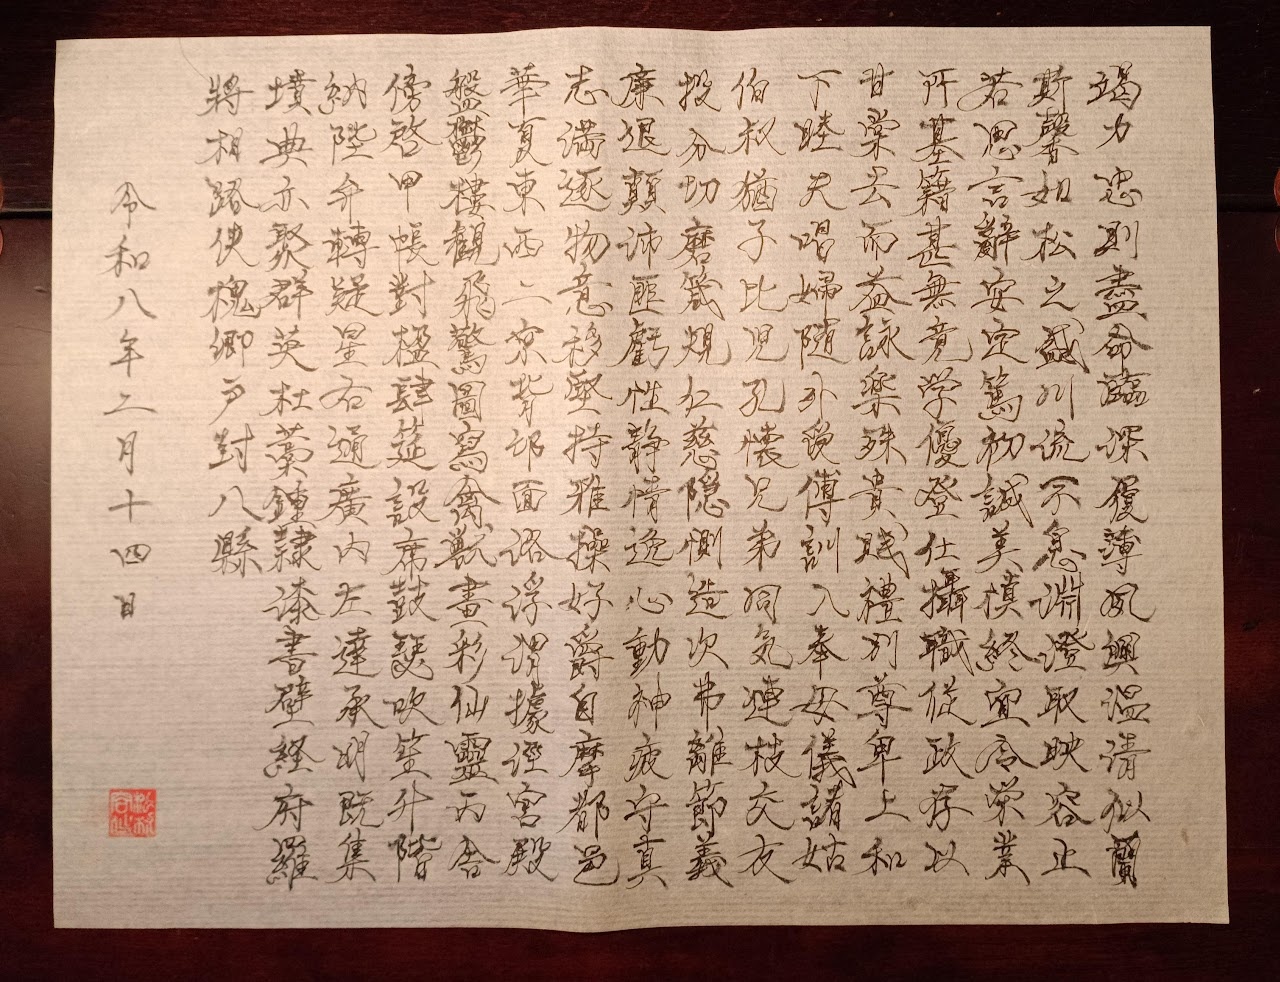 竭力忠則盡命臨深履薄夙興温清似蘭
斯馨如松之盛川流不息淵澄取映容止
若思言辭安定篤初誠美慎終宜令榮業
所基籍甚無竟学優登仕攝職従政存以
甘棠去而益詠楽殊貴賤禮別尊卑上和
下睦夫唱婦随外受傅訓入奉母儀諸姑
伯叔猶子比児孔懐兄弟同気連枝交友
投分切磨箴規仁慈隠惻造次弗離節義
廉退顛沛匪虧性静情逸心動神疲守真
志満逐物意移堅持雅操好爵自摩都邑
華夏東西二京背邙面洛浮渭據涇宮殿
盤鬱樓観飛驚圖寫禽獣畫彩仙靈丙舎
傍啓甲帳對楹肆筵設席鼓瑟吹笙升階
納陛弁轉疑星右通廣内左達承明既集
墳典亦聚群英杜藁鍾隷漆書壁経府羅
將相路侠槐卿戸封八縣
令和八年二月十四日